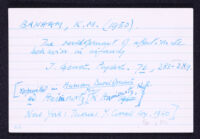 BANHAM, K.M. (1950)
The development of affectionate
behavior in infancy
J. Genet. Psychol., 76, 283-289
[Reprinted in Human Development
in
New York: Y. Crowell Co., 1960]